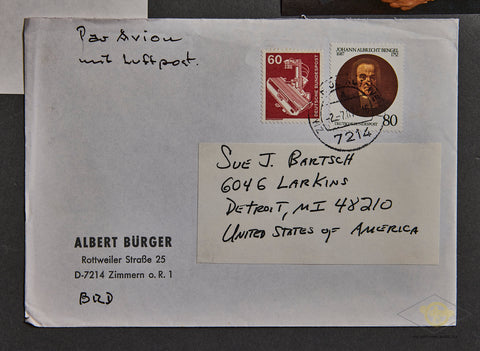 Par Avion
mit Luftpost.
60
DEUTSCHE BUNDESPOST
JOHANN ALBRECHT BENGEL
1687
1752
DEUTSCHE BUNDESPOST
80
7214
SUE J. BARTSCH
6046 LARKINS
DETROIT, MI 48210
UNITED STATES OF AMERICA
ALBERT BÜRGER
Rottweiler Straße 25
D-7214 Zimmern o. R. 1
BRD